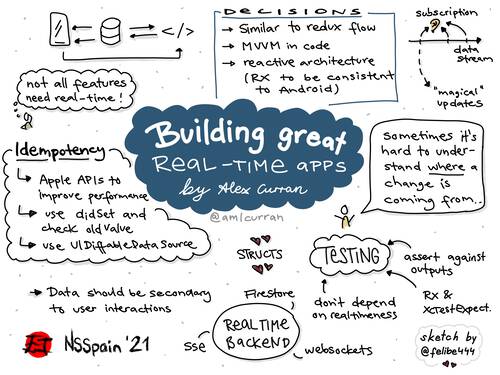 </>
not all features
need real-time!
DECISIONS
→ Similar to redux flow
→ MVVM in code
→ reactive architecture
(RX to be consistent
to Android)
subscription
data
stream
"magical"
updates
Building great
REAL-TIME apps
by Alex Curran
@amlcurran
Idempotency
Apple APIs to
improve performance
use didSet and
check oldValue
use UIDiffableDataSource
Sometimes it's
hard to under-
stand where a
change is
coming from..
STRUCTS
TESTING
assert against
outputs
Rx &
XCTestExpect.
don't depend
on realtimeness
→ Data should be secondary
to user interactions
Firestore
REALTIME
BACKEND
SSE
websockets
NSSpain '21
sketch by
@felibe444